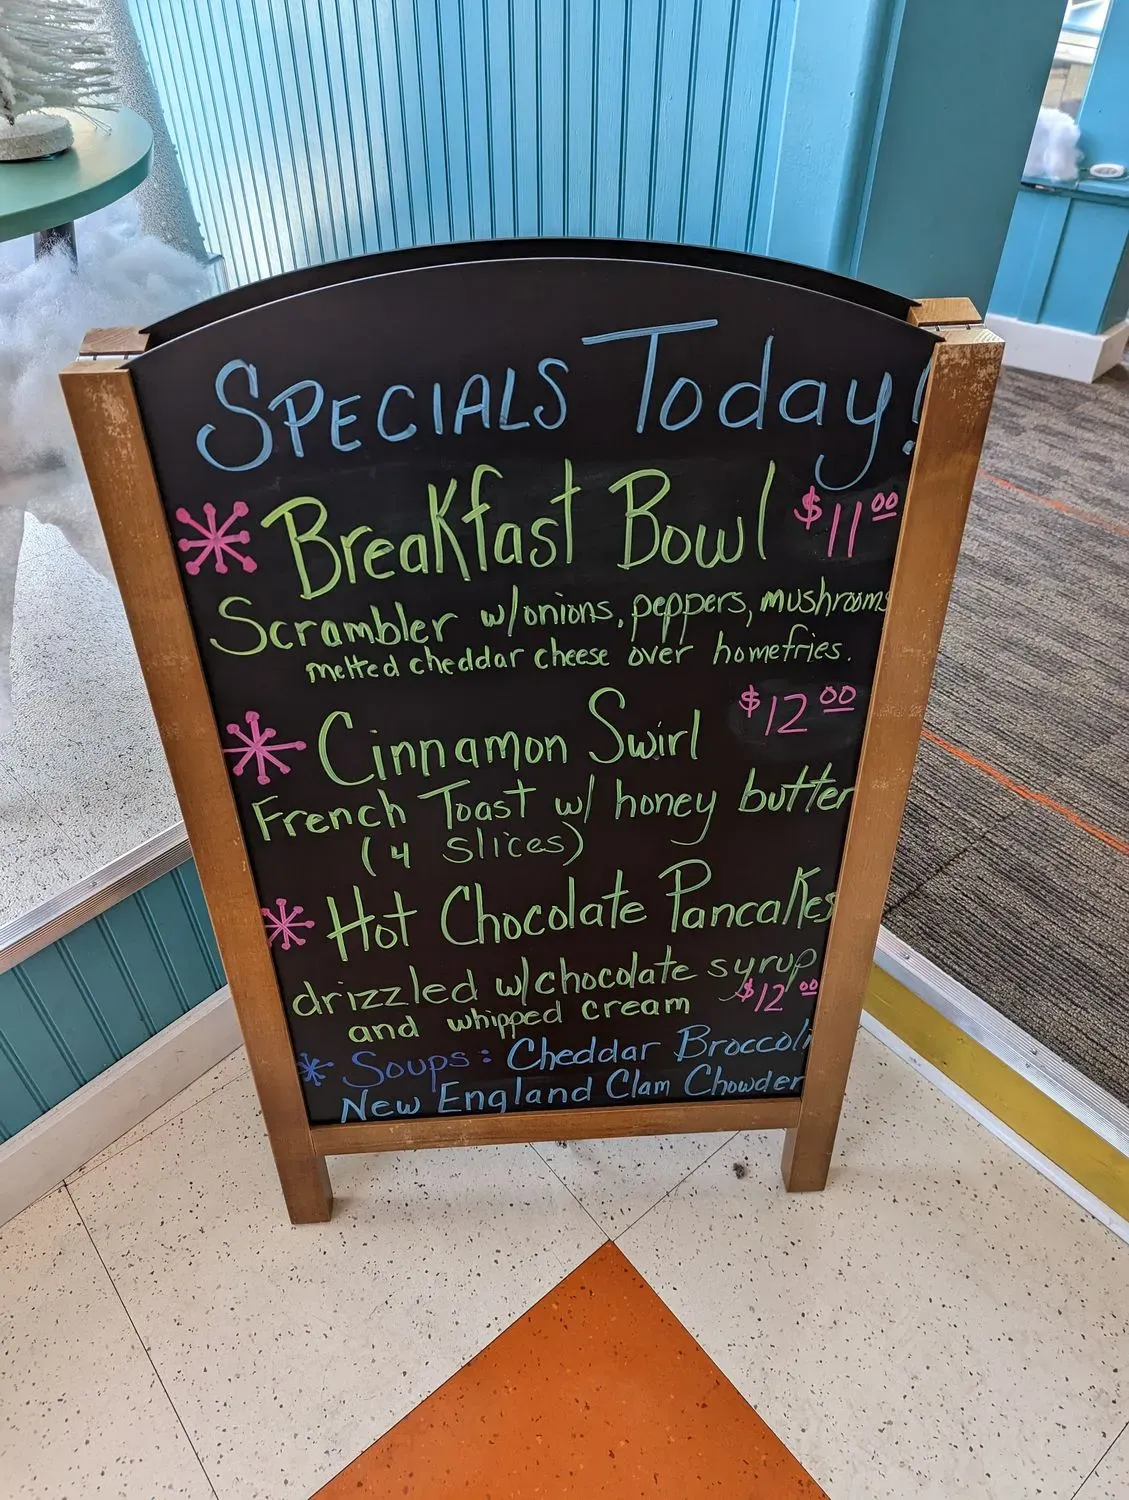 SPECIALS Today!
* Breakfast Bowl $11.00
Scrambler w/onions, peppers, mushrooms
melted cheddar cheese over homefries.
$12.00
* Cinnamon Swirl
French Toast w/ honey butter
(4 slices)
* Hot Chocolate Pancakes
drizzled w/chocolate syrup
and whipped cream $12.00
* Soups: Cheddar Broccoli
New England Clam Chowder